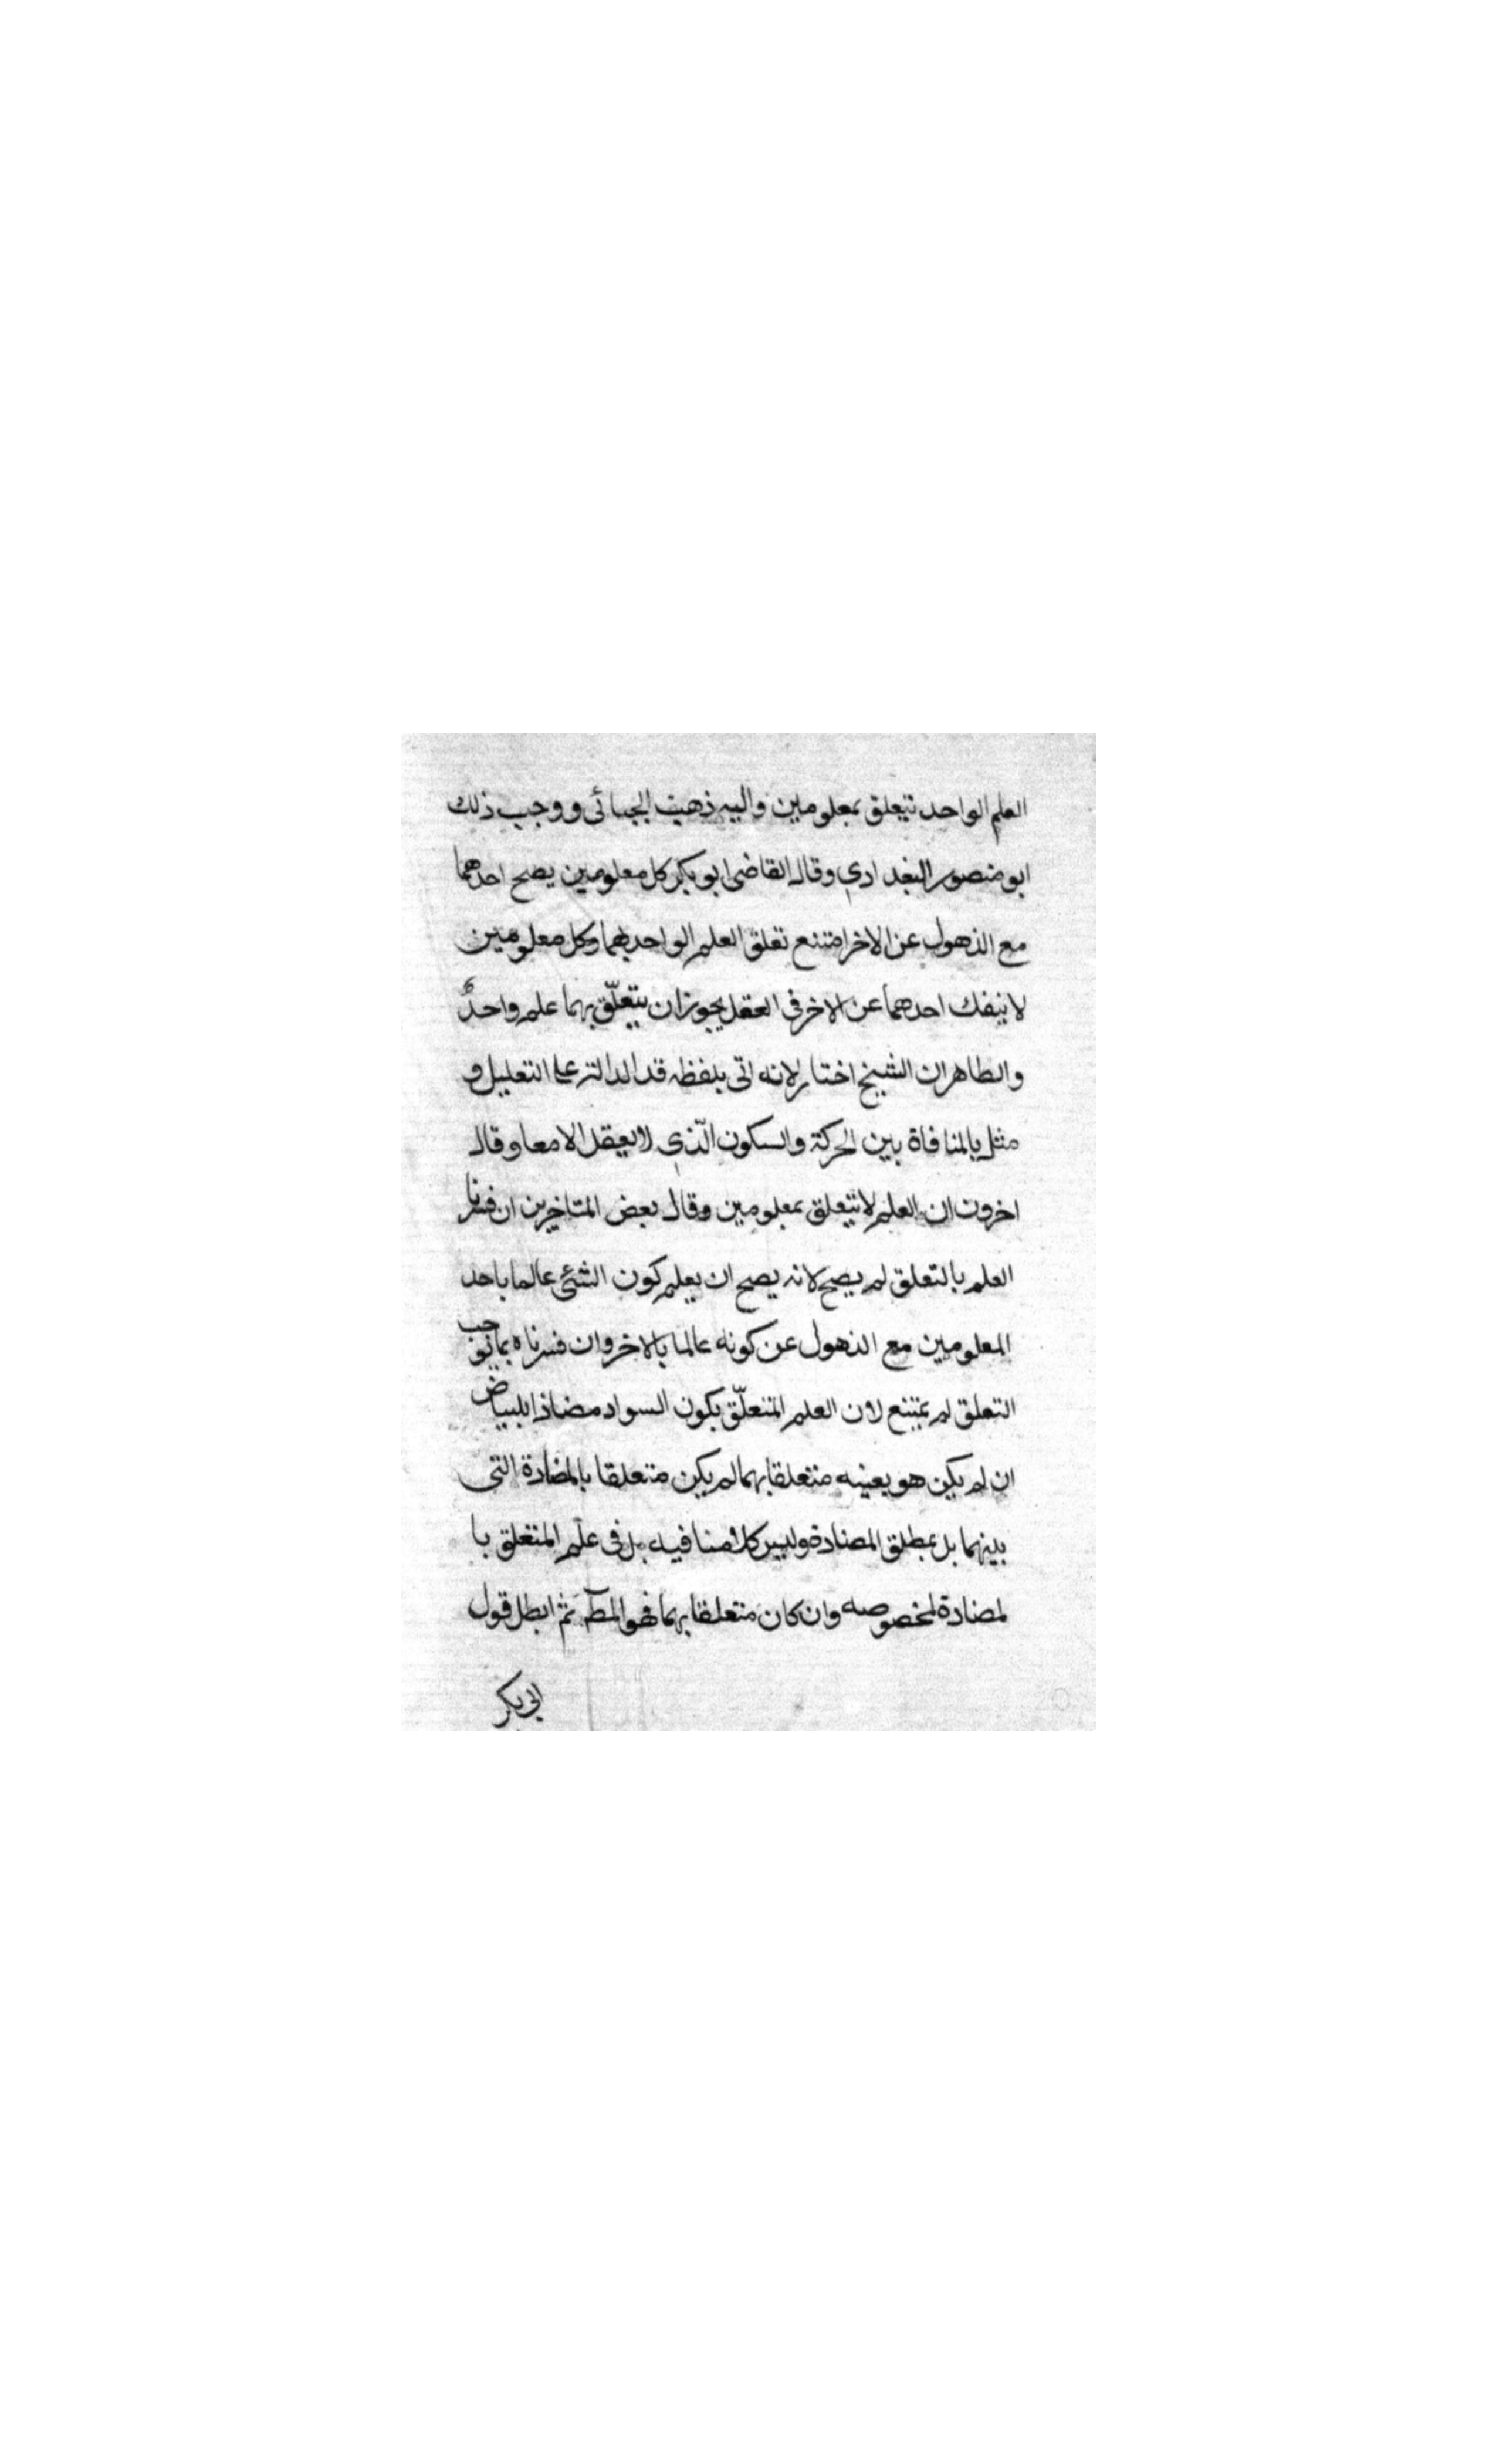 العلم الواحد يتعلق بمعلومين واليه ذهب الجبائى ووجب ذلك
ابو منصور البغدادى وقال القاضى ابو بكر كل معلومين يصح احدهما
مع الذهول عن الاخر امتنع تعلق العلم الواحد بهما وكل معلومين
لا ينفك احدهما عن الاخر فى العقل يجوز ان يتعلّق بهما علم واحدٌ
والظاهر ان الشيخ اختار لانه اتى بلفظه قد الدالة على التعليل و
مثل بالمنافاة بين الحركة والسكون الّذى لا يعقل الا معا وقال
اخرون ان العلم لا يتعلق بمعلومين وقال بعض المتاخرين ان فسرنا
العلم بالتعلق لم يصح لانه يصح ان يعلم كون الشئ عالما باحد
المعلومين مع الذهول عن كونه عالما بالاخر وان فسرناه بما يوجب
التعلق لم يمتنع لان العلم المتعلّق بكون السواد مضادا للبياض
ان لم يكن هو بعينه متعلقا بهما لم يكن متعلقا بالمضادة التى
بينهما بل بمطلق المضادة وليس كلامنا فيه بل فى علم المتعلق با
لمضادة المخصوصه وان كان متعلقا بهما فهو المط ثم ابطل قول
ابى بكر